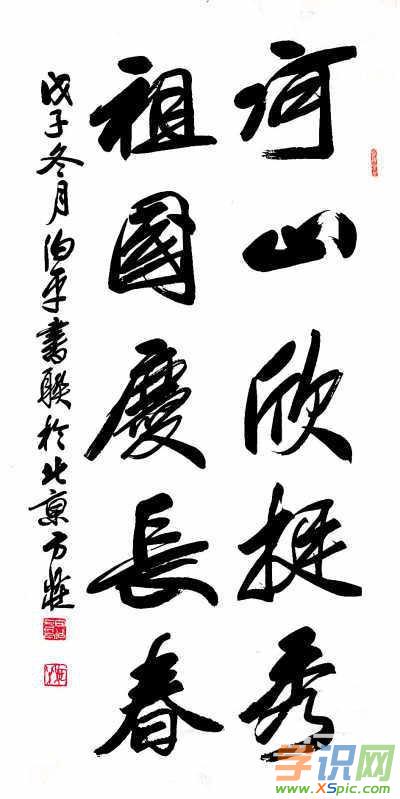 河山欣挺秀
祖國慶長春
戊子冬月 平書聯於北京方莊
学识网
www.XSpic.com